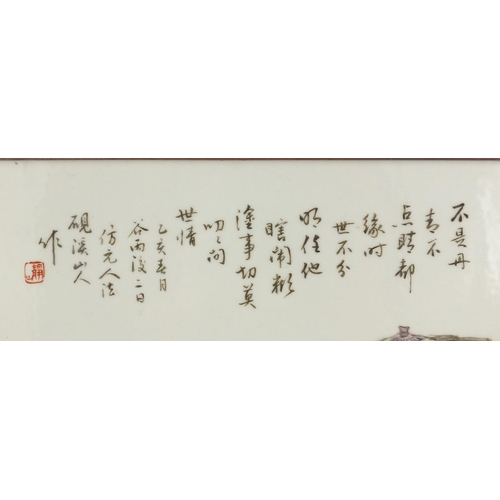 不是丹
青不
点睛都
缘时
世不分
明任他
瞎闹
塗事切莫
叨叨问
世情
乙亥春月
谷雨後二日
仿元人法
砚溪山人
作